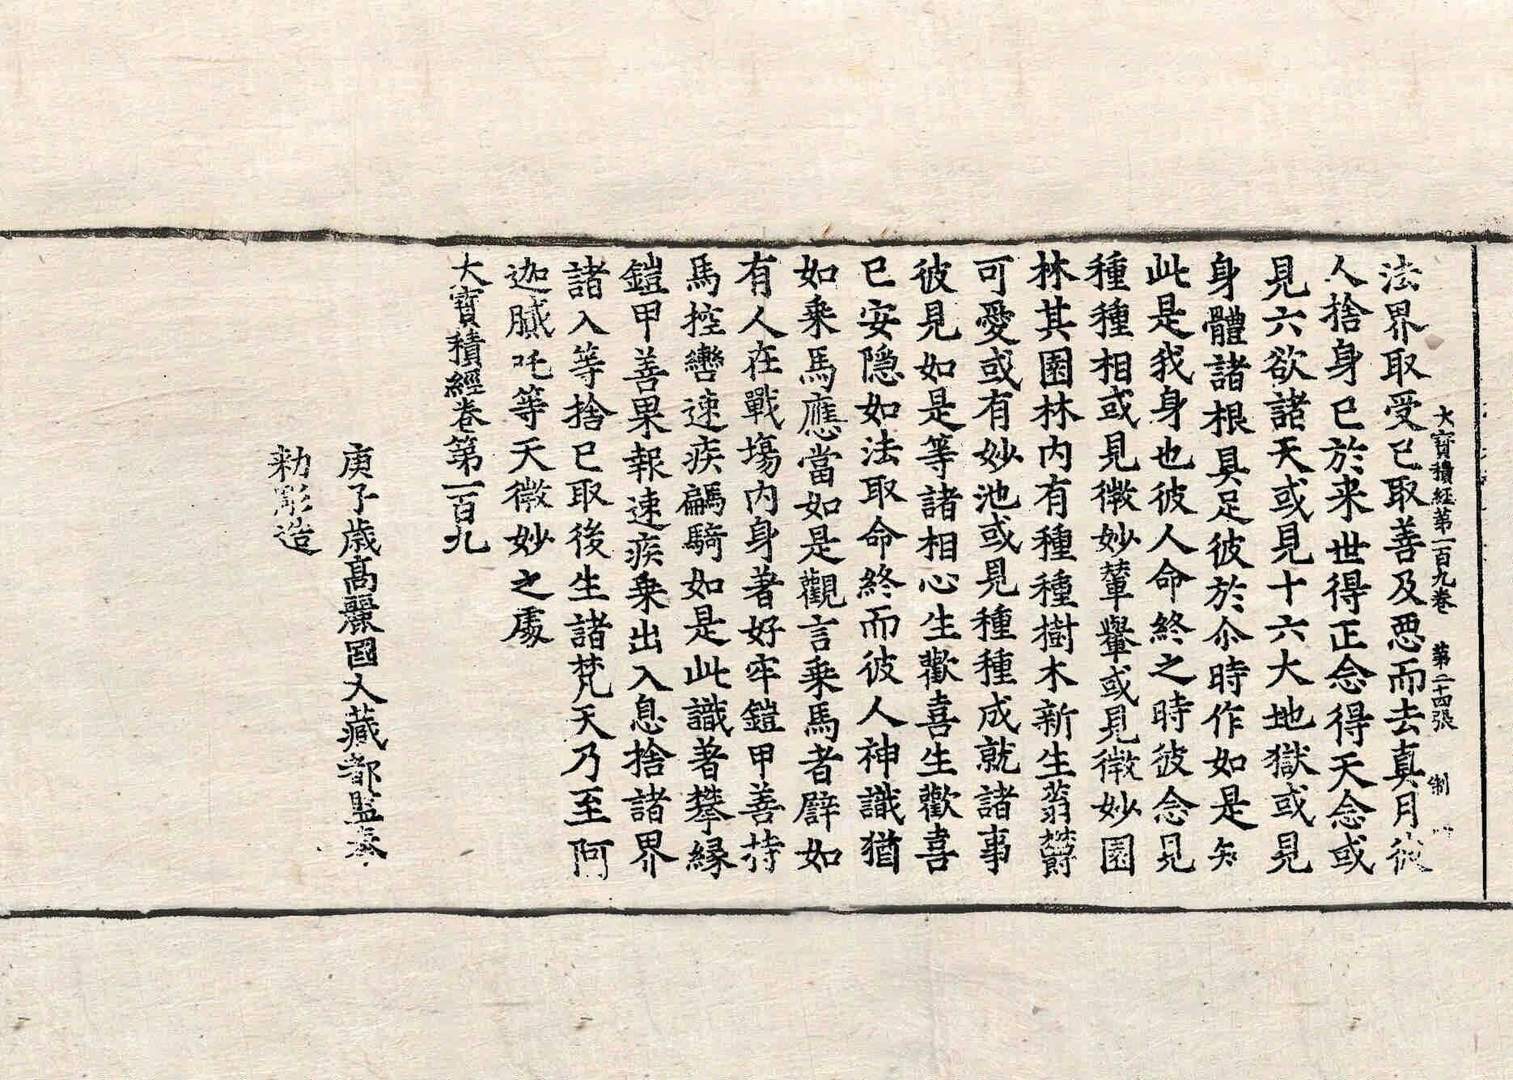 大寶積經第一百九卷 第二十四張 制
法界取受已取善及惡而去真月彼
人捨身已於来世得正念得天念或
見六欲諸天或見十六大地獄或見
身體諸根具足彼於尒時作如是知
此是我身也彼人命終之時彼念見
種種相或見微妙輦轝或見微妙園
林其園林内有種種樹木新生蓊欝
可愛或有妙池或見種種成就諸事
彼見如是等諸相心生歡喜生歡喜
已安隠如法取命終而彼人神識猶
如乗馬應當如是觀言乗馬者譬如
有人在戰場内身著好牢鎧甲善持
馬控轡速疾騗騎如是此識著攀縁
鎧甲善果報速疾乗出入息捨諸界
諸入等捨已取後生諸梵天乃至阿
迦膩吒等天微妙之處
大寶積經卷第一百九
庚子歳髙麗國大藏都監奉
勑彫造